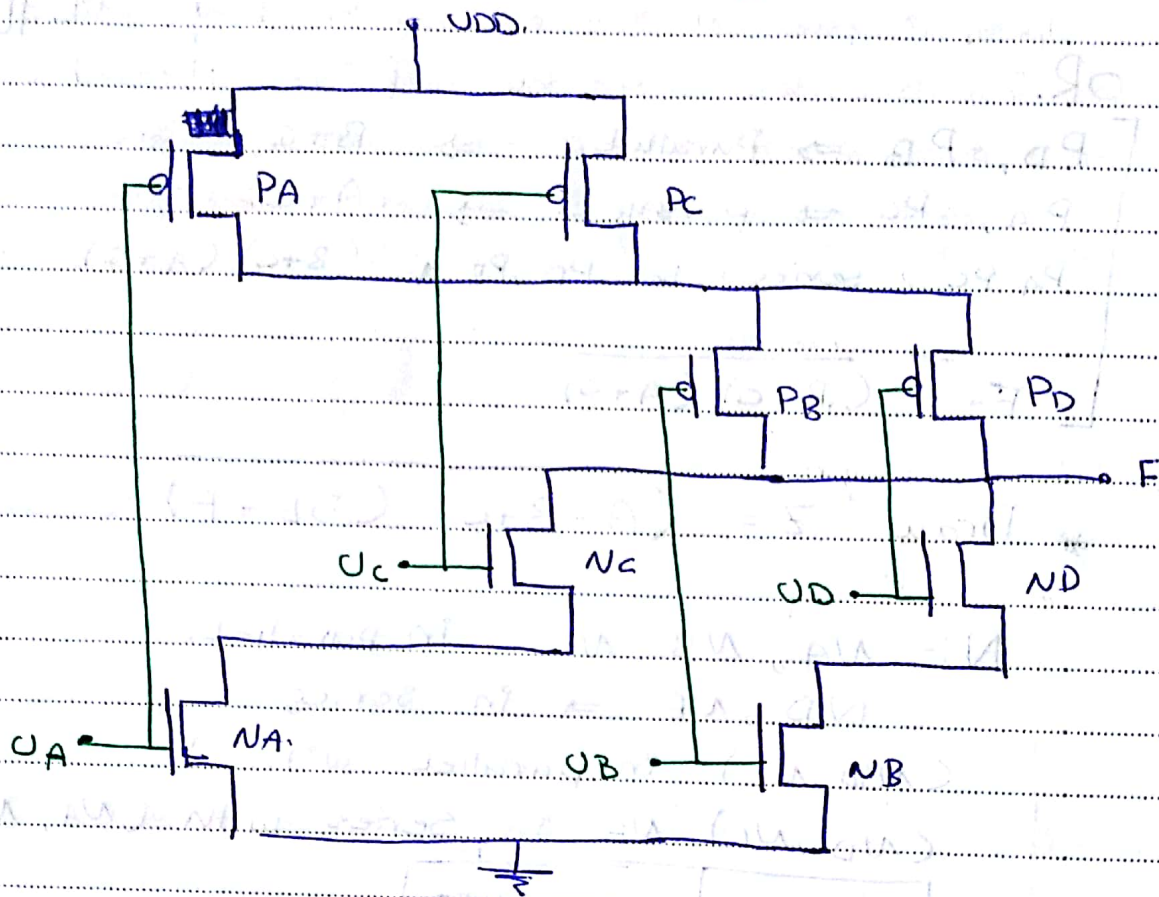 VDD.
PA
PC
PB
PD
F
UC
NC
UD
ND
UA
NA.
UB
NB